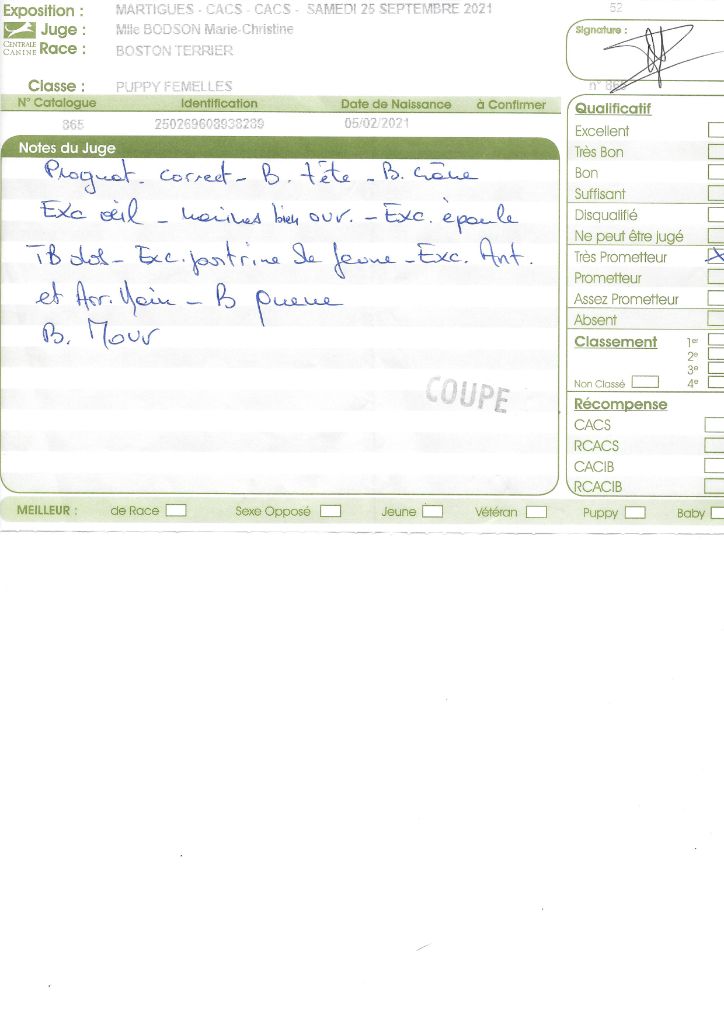 Exposition : MARTIGUES - CACS - CACS - SAMEDI 25 SEPTEMBRE 2021 52
Juge : Mlle BODSON Marie-Christine
CENTRALE CANINE
Race : BOSTON TERRIER
Signature :
Classe : PUPPY FEMELLES
n° 865
N° Catalogue Identification Date de Naissance à Confirmer
865 250269608938289 05/02/2021
Notes du Juge
Prognat. correct - B. tête - B. crâne
Exc œil - narines bien ouv. - Exc. épaule
TB dos - Exc. poitrine de jeune - Exc. Ant.
et Arr. Main - B queue
B. Mouv
COUPE
Qualificatif
Excellent
Très Bon
Bon
Suffisant
Disqualifié
Ne peut être jugé
Très Prometteur X
Prometteur
Assez Prometteur
Absent
Classement 1er
2e
3e
Non Classé 4e
Récompense
CACS
RCACS
CACIB
RCACIB
MEILLEUR : de Race Sexe Opposé Jeune Vétéran Puppy Baby